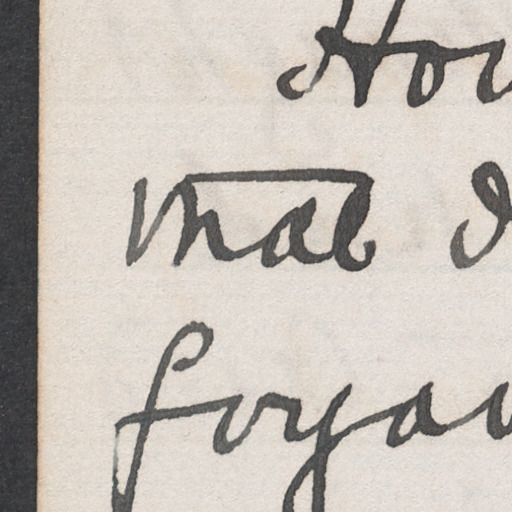 Hou
that I
forgav